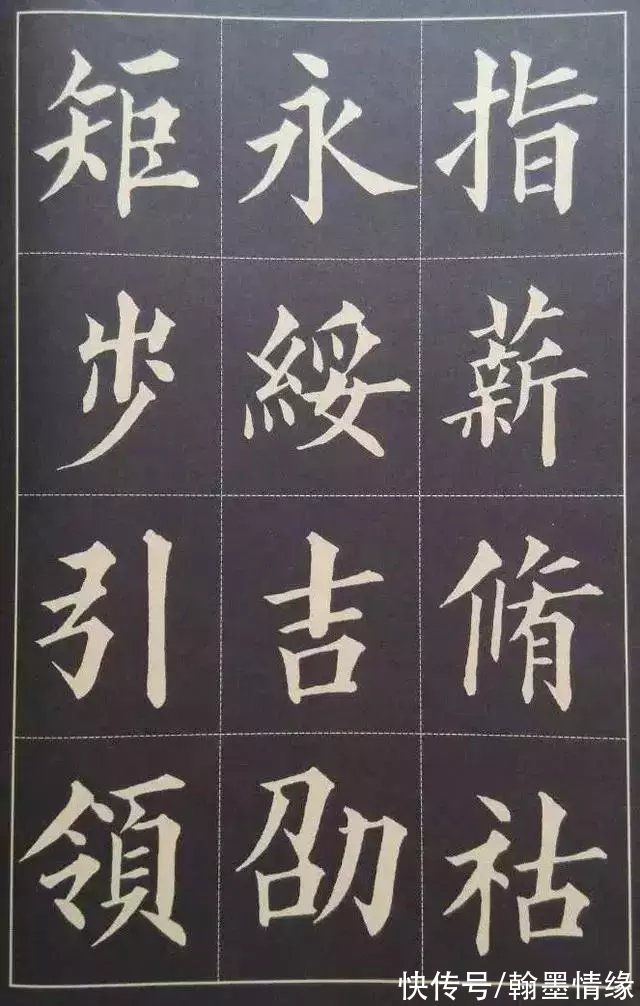 指薪脩祜
永綏吉劭
矩步引領
快传号/翰墨情缘